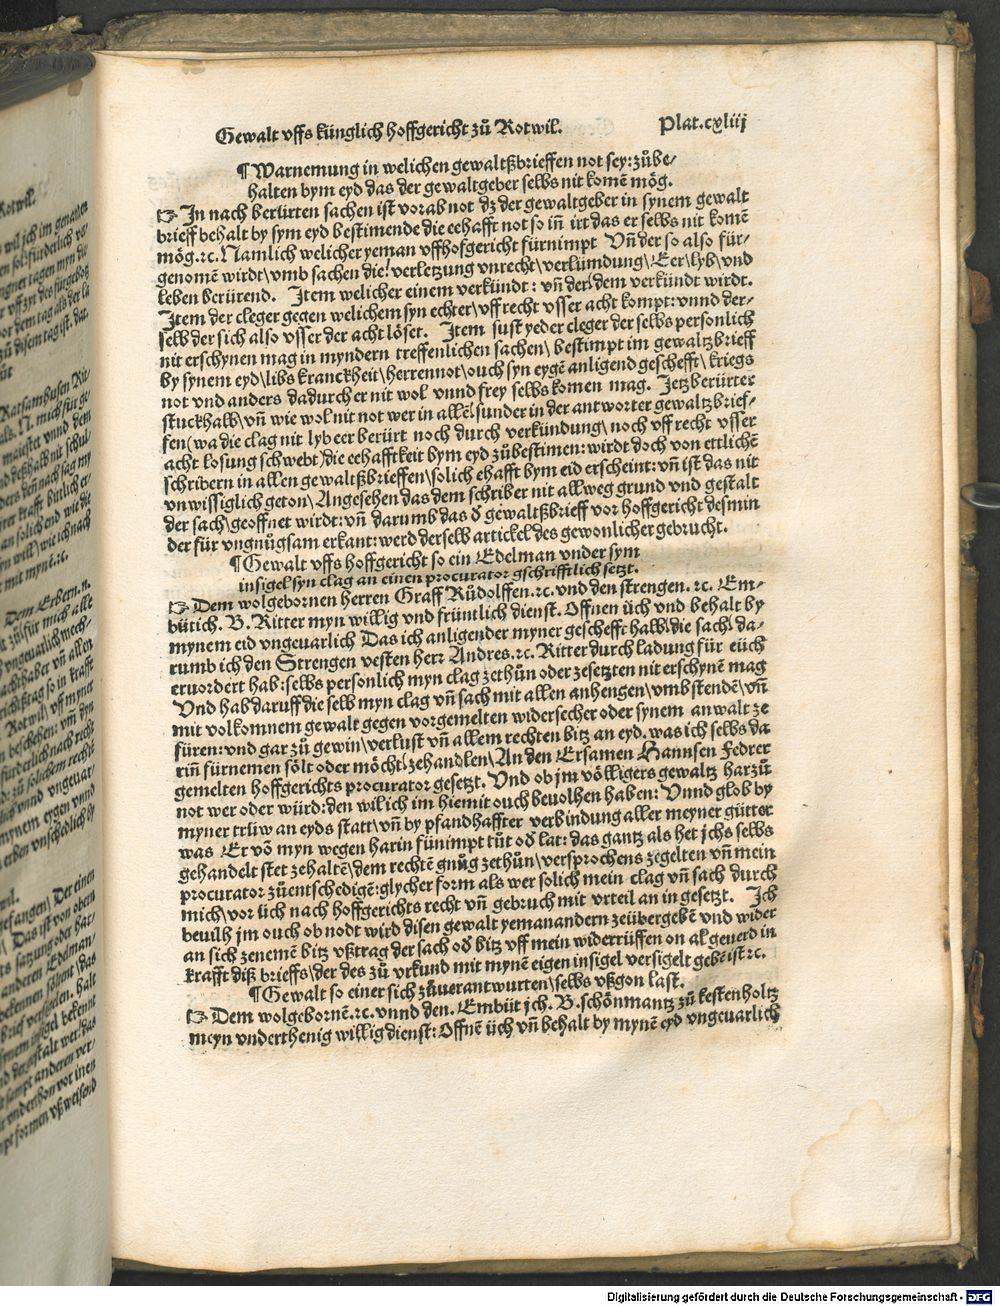 Gewalt vffs künglich hoffgericht zů Rotwil.
Plat.cxliij
¶ Warnemung in welichen gewaltßbrieffen not sey: zůbe⸗
halten bym eyd das der gewaltgeber selbs nit komẽ mög.
☞ In nach berürten sachen ist vorab not dz der gewaltgeber in synem gewalt
brieff behalt by sym eyd bestimende die eehafft not so in̄ irt das er selbs nit komẽ
mög.⁊c. Namlich welicher yeman vffhofgericht fürnimpt Vn̄ der so also für⸗
genomẽ wirdt\vmb sachen die verletzung vnrecht\verlümdung\Eer\lyb\vnd
leben berürend. Item welicher einem verkündt: vn̄ der\dem verkündt wirdt.
Item der cleger gegen welichem syn echter\vff recht vsser acht kompt: vnnd der⸗
selb der sich also vsser der acht löset. Item sust yeder cleger der selbs personlich
nit erschynen mag in myndern treffenlichen sachen\ bestimpt im gewaltzbrieff
by synem eyd\libs kranckheit\herrennot\ouch syn eygẽ anligend geschefft\ kriegs
not vnd anders dadurch er nit wol vnnd frey selbs komen mag. Jetz berürter
stuckhalb\vn̄ wie wol nit not wer in allẽ\sunder in der antworter gewaltzbrief⸗
fen(wa die clag nit lyb eer berürt noch durch verkündung\noch vff recht vsser
acht losung schwebt)die eehafftkeit bym eyd zůbestimen: wirdt doch von ettlichẽ
schribern in allen gewaltßbrieffen\solich ehafft bym eid erscheint: vn̄ ist das nit
vnwissiglich geton\Angesehen das dem schriber nit allweg grund vnd gestalt
der sach\geoffnet wirdt: vn̄ darumb das ð gewaltßbrieff vor hoffgericht desmin
der für vngnügsam erkant: werd der selb artickel des gewonlicher gebrucht.
¶ Gewalt vffs hoffgericht so ein Edelman vnder sym
insigel syn clag an einen procurator gschrifftlich setzt.
☞ Dem wolgebornen herren Graff Růdolffen.⁊c. vnd den strengen. ⁊c. Em⸗
bütich. B. Ritter myn willig vnd früntlich dienst. Offnen üch vnd behalt by
mynem eid vngeuarlich Das ich anligender myner geschefft halb\die sach\ da⸗
rumb ich den Strengen vesten herr Andres.⁊c. Ritter durch ladung für eüch
eruordert hab: selbs persönlich myn clag zethůn oder zesetzten nit erschynẽ mag
Vnd hab daruff die selb myn clag vn̄ sach mit allen anhengen\vmbstendẽ\vn̄
mit volkomnem gewalt gegen vorgemelten widersecher oder synem anwalt ze
füren: vnd gar zů gewin\verlust vn̄ allem rechten bitz an eyd. was ich selbs da
rin̄ fürnemen sölt oder möcht\zehandlen\An den Ersamen Hannsen Fedrer
gemelten hoffgerichts procurator gesetzt. Vnd ob jm völligers gewaltz harzů
not wer oder würd: den wil ich im hiemit ouch beuolhen haben: Vnnd glob by
myner trüw an eyds statt\vn̄ by pfandhaffter verbindung aller meyner gütter
was Er vō myn wegen harin fünimpt tůt oð lat: das gantz als het jchs selbs
gehandelt stet zehaltẽ\dem rechtẽ gnůg zethůn\versprochens zegelten vn̄ mein
procurator zůentschedigẽ: glycher form als wer solich mein clag vn̄ sach durch
mich\vor üch nach hoffgerichts recht vn̄ gebruch mit vrteil an in gesetzt. Ich
beuilh jm ouch ob nodt wird disen gewalt yeman andern zeübergebẽ vnd wider
an sich zenemẽ bitz vßtrag der sach oð bitz vff mein widerrüffen on al geuerd in
krafft diß brieffs\der des zů vrkund mit mynẽ eigen insigel versigelt gebẽ ist ⁊c.
¶ Gewalt so einer sich zůuerantwurten\selbs vßgon last.
☞ Dem wolgebornẽ.⁊c. vnnd den. Embüt jch. B. schönmantz zů kestenholtz
meyn vnderthenig willig dienst: Offnẽ üch vn̄ behalt by mynẽ eyd vngeuarlich
Digitalisierung gefördert durch die Deutsche Forschungsgemeinschaft - DFG